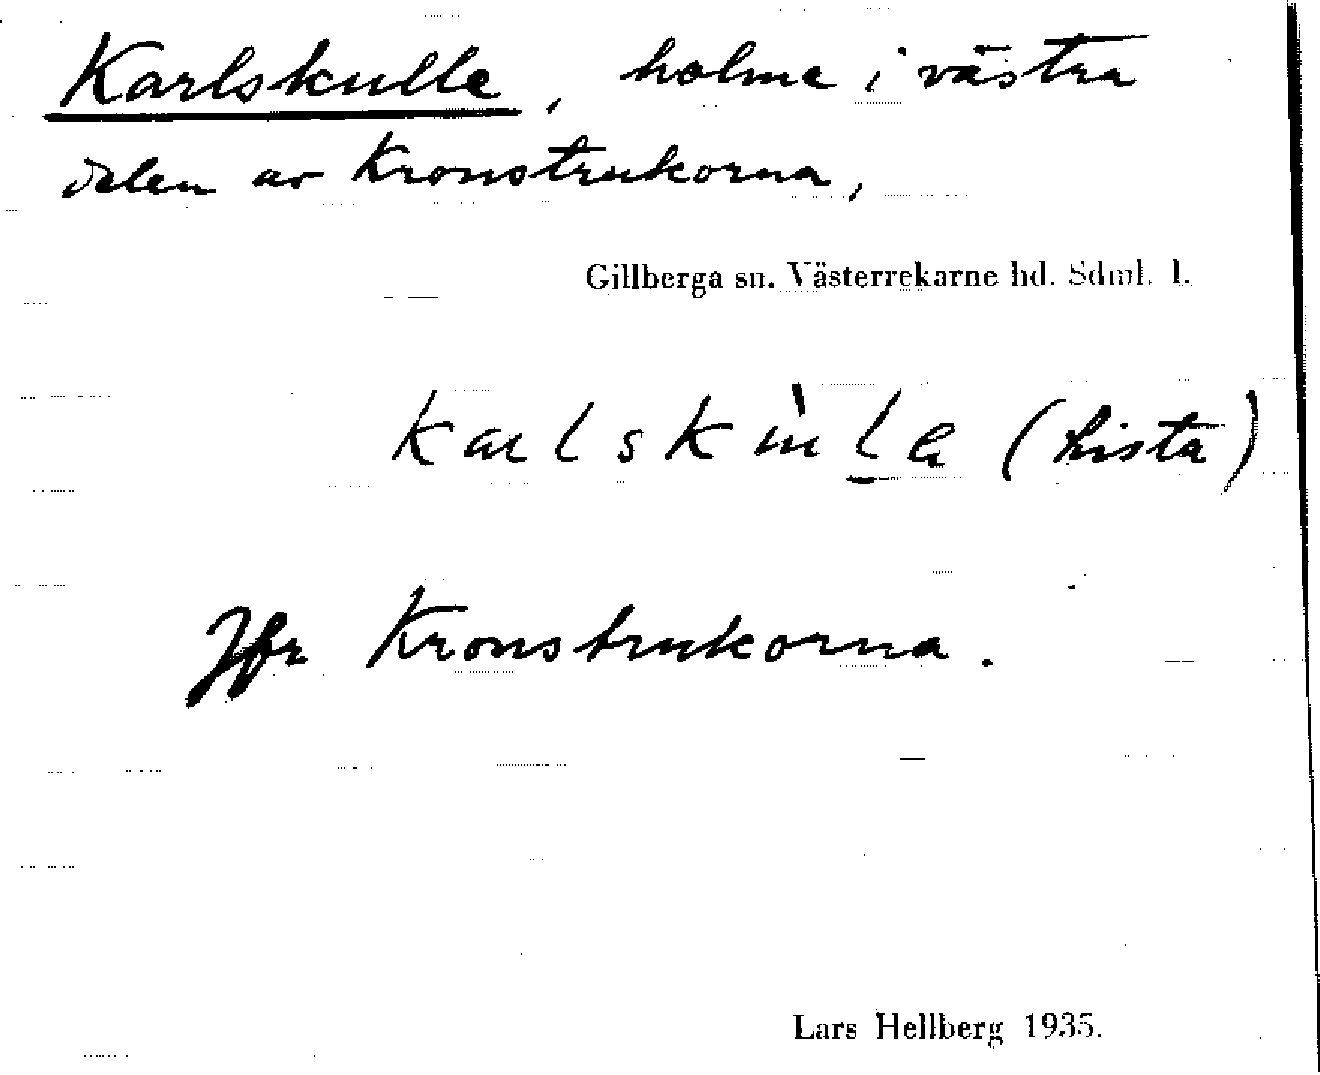 Karlskulle, holme i västra
delen av Kronstrukorna,
Gillberga sn. Västerrekarne hd. Sdml. l.
(hista)
Jfr Kronstrukorna.
Lars Hellberg 1935.